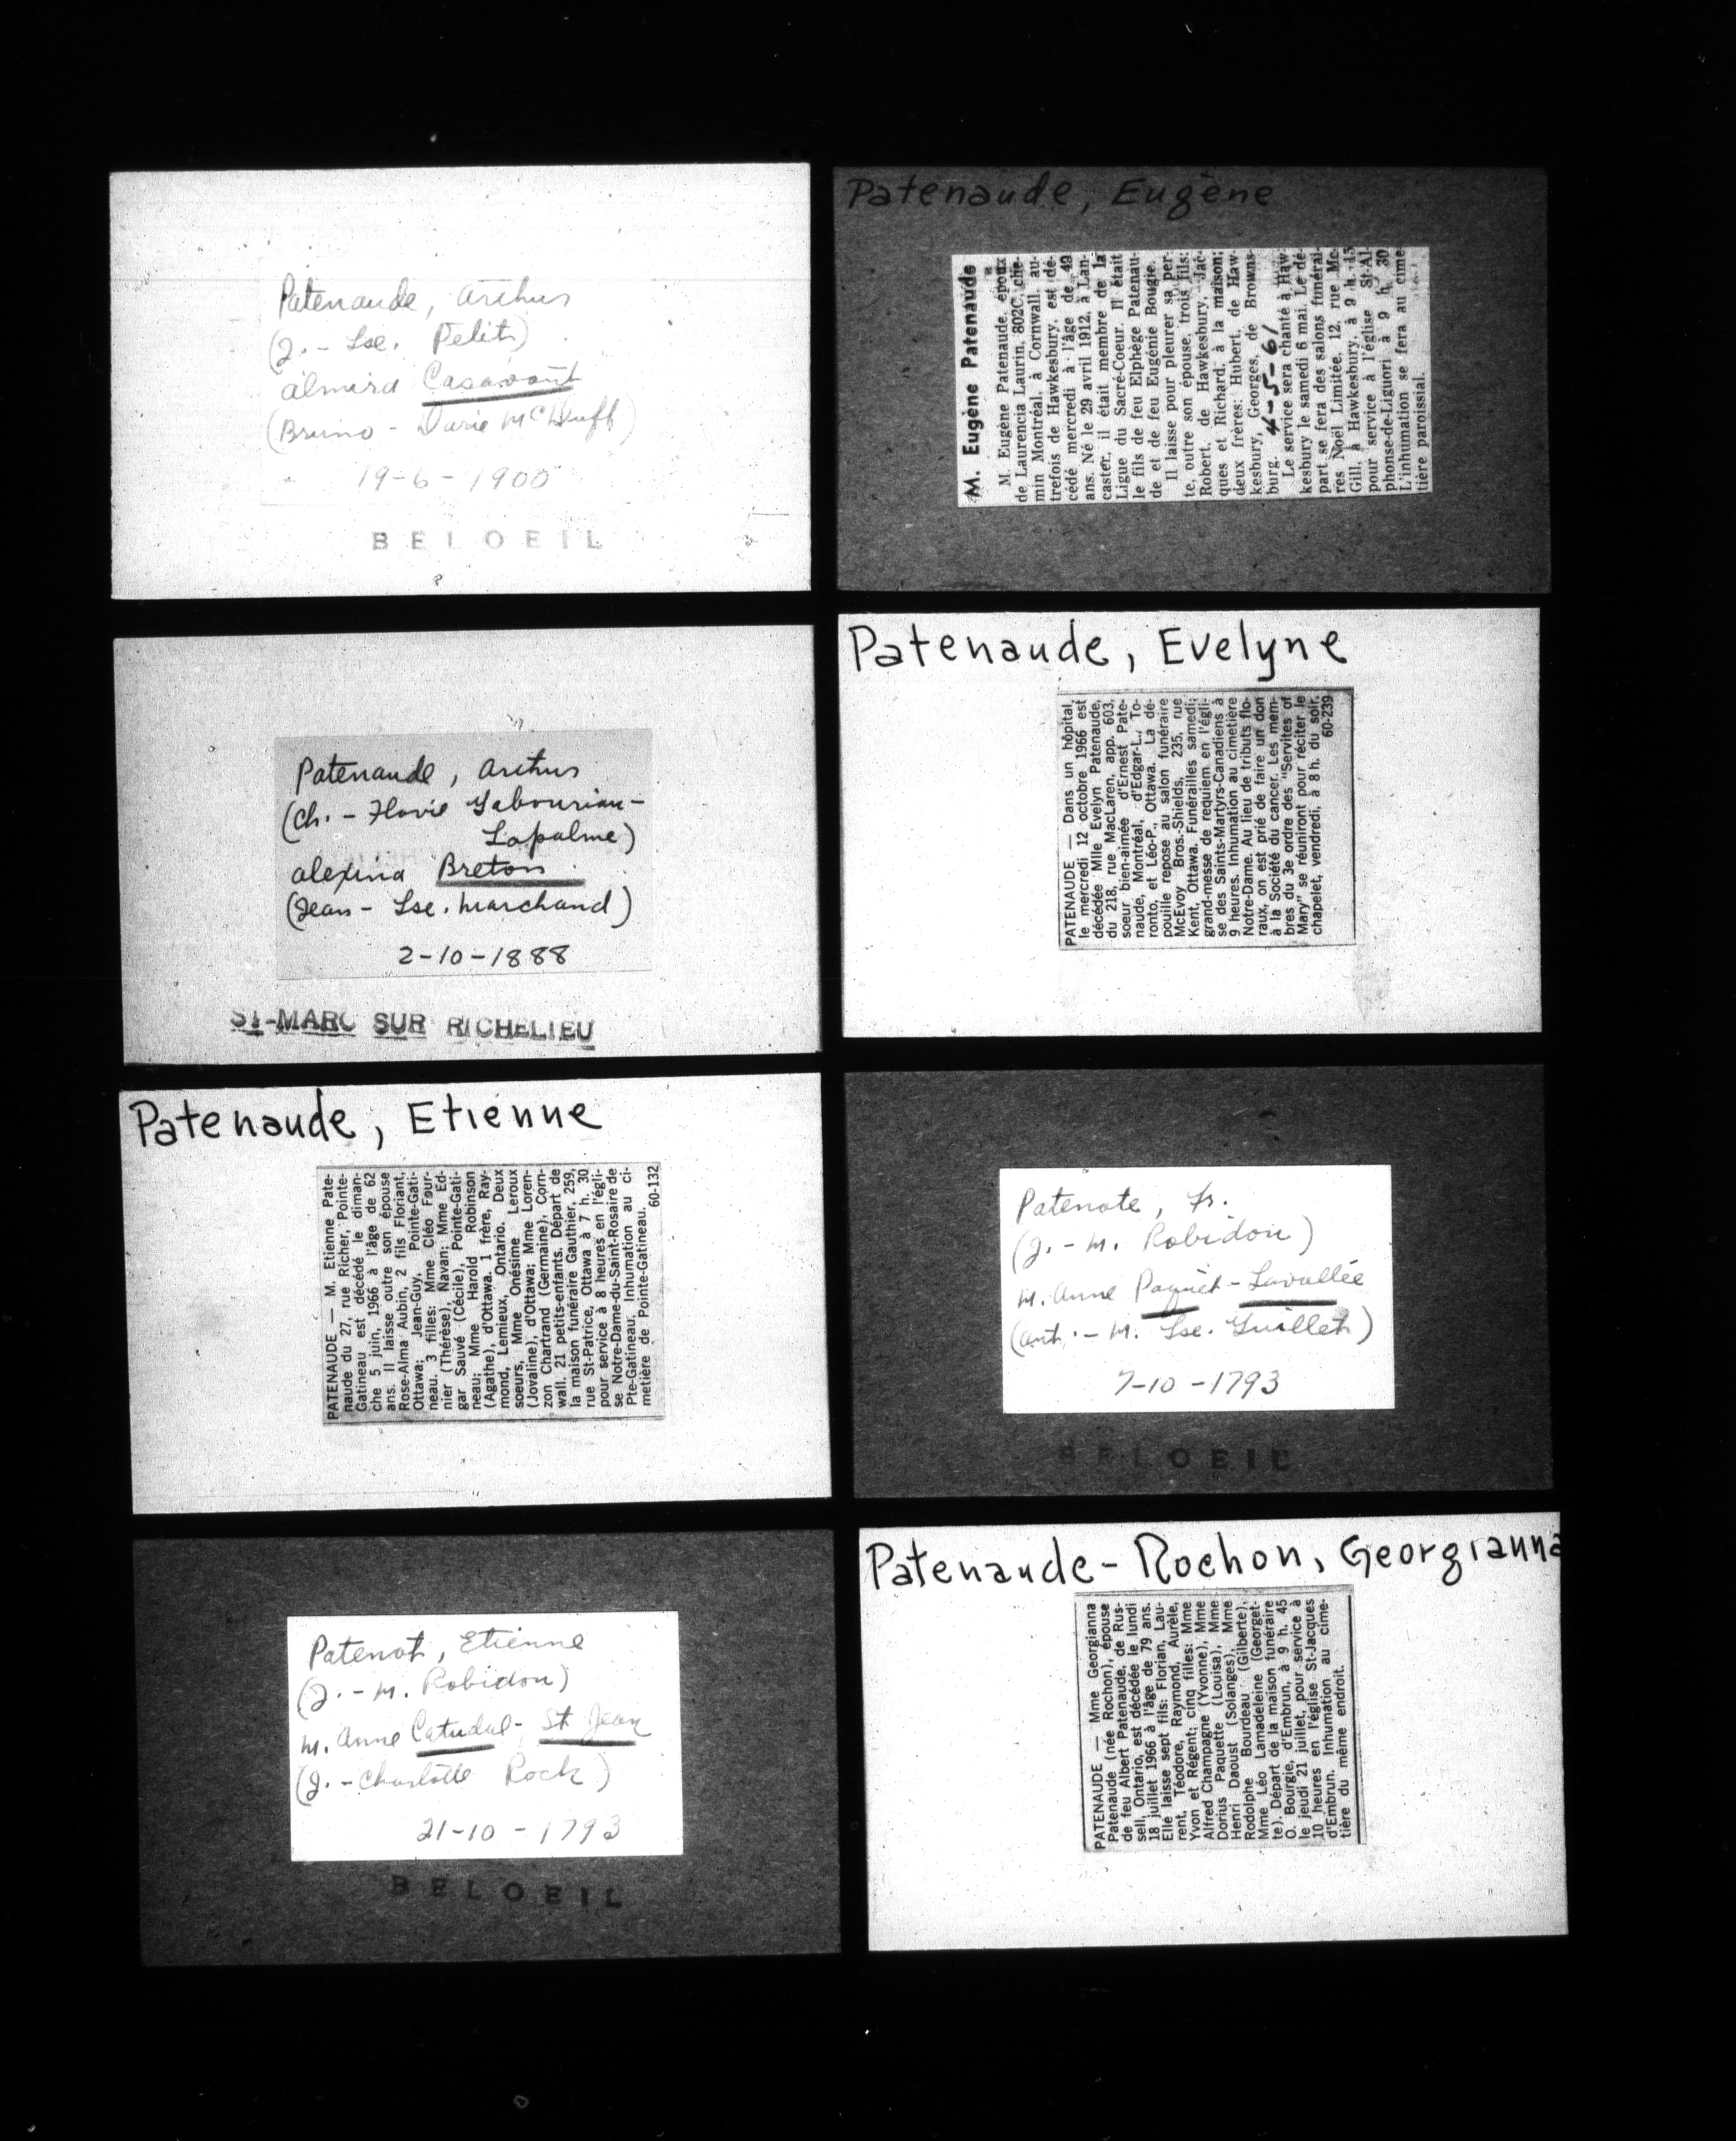 Patenaude, Arthur
(J. - Lse. Petit)
Almira Casavant
(Bruno - Marie McDuff)
19-6-1900
BELOEIL
Patenaude, Arthur
(Ch. - Flavie Gabouriau-
Lapalme)
Alexina Breton
(Jean - Lse. Marchand)
2-10-1888
ST-MARC SUR RICHELIEU
Patenaude, Etienne
PATENAUDE — M. Etienne Pate-
naude du 27, rue Richer, Pointe-
Gatineau est décédé le diman-
che 5 juin, 1966 à l'âge de 62
ans. Il laisse outre son épouse
Rose-Alma Aubin, 2 fils Floriant,
Ottawa; Jean-Guy, Pointe-Gati-
neau. 3 filles: Mme Cléo Four-
nier (Thérèse), Navan; Mme Ed-
gar Sauvé (Cécile), Pointe-Gati-
neau; Mme Harold Robinson
(Agathe), d'Ottawa. 1 frère, Ray-
mond, Lemieux, Ontario. Deux
soeurs, Mme Onésime Leroux
(Jovaline), d'Ottawa; Mme Loren-
zon Chartrand (Germaine), Corn-
wall. 21 petits-enfants. Départ de
la maison funéraire Gauthier, 259,
rue St-Patrice, Ottawa à 7 h. 30
pour service à 8 heures en l'égli-
se Notre-Dame-du-Saint-Rosaire de
Pte-Gatineau. Inhumation au ci-
metière de Pointe-Gatineau.
60-132
Patenot, Etienne
(J. - M. Robidou)
M. Anne Catudal - St Jean
(J. - Charlotte Rock)
21-10-1793
BELOEIL
Patenaude, Eugène
M. Eugène Patenaude
M. Eugène Patenaude, époux
de Laurencia Laurin, 802C, che-
min Montréal, à Cornwall, au-
trefois de Hawkesbury, est dé-
cédé mercredi à l'âge de 49
ans. Né le 29 avril 1912, à Lan-
caster, il était membre de la
Ligue du Sacré-Coeur. Il était
le fils de feu Elphège Patenau-
de et de feu Eugénie Bougie.
Il laisse pour pleurer sa per-
te, outre son épouse, trois fils:
Robert, de Hawkesbury, Jac-
ques et Richard, à la maison;
deux frères: Hubert, de Haw-
kesbury, Georges, de Browns-
burg. 4-5-61
Le service sera chanté à Haw-
kesbury le samedi 6 mai. Le dé-
part se fera des salons funérai-
res Noël Limitée, 12, rue Mc-
Gill, à Hawkesbury, à 9 h. 15
pour service à l'église St-Al-
phonse-de-Liguori à 9 h. 30
L'inhumation se fera au cime-
tière paroissial.
Patenaude, Evelyne
PATENAUDE — Dans un hôpital,
le mercredi 12 octobre 1966 est
décédée Mlle Evelyn Patenaude,
du 218, rue MacLaren, app. 603,
soeur bien-aimée d'Ernest Pate-
naude, Montréal, d'Edgar-L., To-
ronto, et Léo-P., Ottawa. La dé-
pouille repose au salon funéraire
McEvoy Bros.-Shields, 235, rue
Kent, Ottawa. Funérailles samedi;
grand-messe de requiem en l'égli-
se des Saints-Martyrs-Canadiens à
9 heures. Inhumation au cimetière
Notre-Dame. Au lieu de tributs flo-
raux, on est prié de faire un don
à la Société du cancer. Les mem-
bres du 3e ordre des "Servites of
Mary" se réuniront pour réciter le
chapelet, vendredi, à 8 h. du soir.
60-239
Patenote, Fr.
(J. - M. Robidou)
M. Anne Paquet - Lavallée
(Ant. - M. Lse. Guillet)
7-10-1793
BELOEIL
Patenaude-Rochon, Georgianna
PATENAUDE — Mme Georgianna
Patenaude (née Rochon), épouse
de feu Albert Patenaude, de Rus-
sell, Ontario, est décédée le lundi
18 juillet 1966 à l'âge de 79 ans.
Elle laisse sept fils: Florian, Lau-
rent, Téodore, Raymond, Aurèle,
Yvon et Régent; cinq filles: Mme
Alfred Champagne (Yvonne), Mme
Dorius Paquette (Louisa), Mme
Henri Daoust (Solanges), Mme
Rodolphe Bourdeau (Gilberte),
Mme Léo Lamadeleine (Georget-
te). Départ de la maison funéraire
O. Bourgie, d'Embrun, à 9 h. 45
le jeudi 21 juillet, pour service à
10 heures en l'église St-Jacques
d'Embrun. Inhumation au cime-
tière du même endroit.